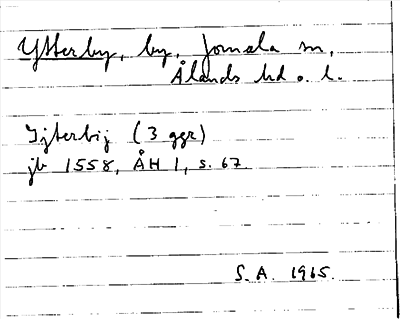 Ytterby, by, Jomala sn,
Ålands hd o. l.
Ijterbij (3 ggr)
jb 1558, ÅH 1, s. 67.
S. A. 1965.